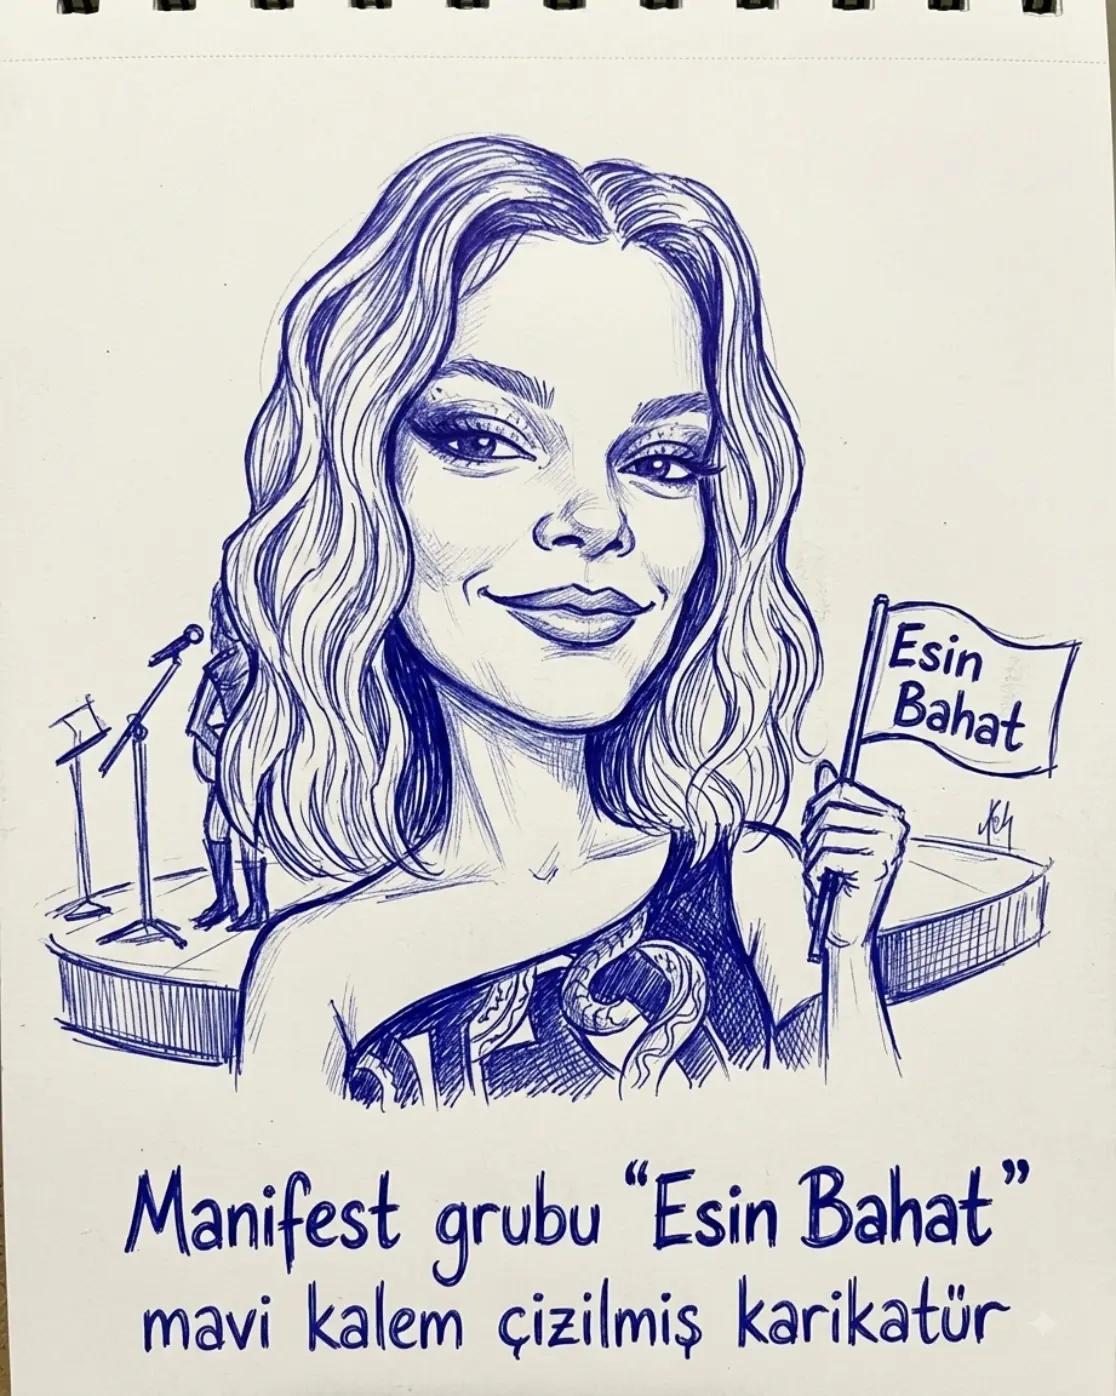 Esin
Bahat
Manifest grubu “Esin Bahat”
mavi kalem çizilmiş karikatür